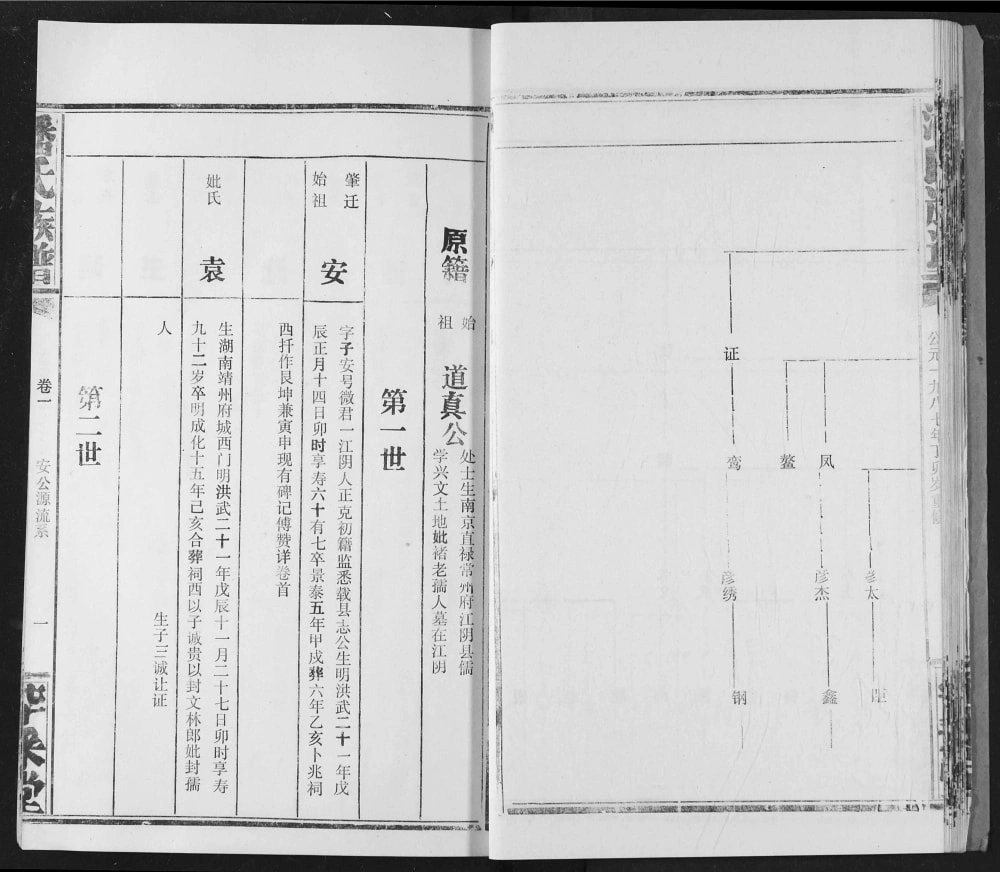 证
鸾
鳌
凤
彦绣
彦杰
彦太
钢
鑫
公元一九八七年丁卯岁
原籍
始祖
道真公
处士生南京直禄常州府江阴县儒
学兴文土地妣褚老孺人墓在江阴
第一世
肇迁
始祖
安
字子安号微君一江阴人正克初籍监悉载县志公生明洪武二十一年戊
辰正月十四日卯时享寿六十有七卒景泰五年甲戌葬六年乙亥卜兆祠
西扦作艮坤兼寅申现有碑记傅赞详卷首
妣氏
袁
生湖南靖州府城西门明洪武二十一年戊辰十一月二十七日卯时享寿
九十二岁卒明成化十五年己亥合葬祠西以子诚贵以封文林郎妣封孺
人
生子三诚让证
第二世
潘氏族谱
卷一
安公源流系
一
荣堂